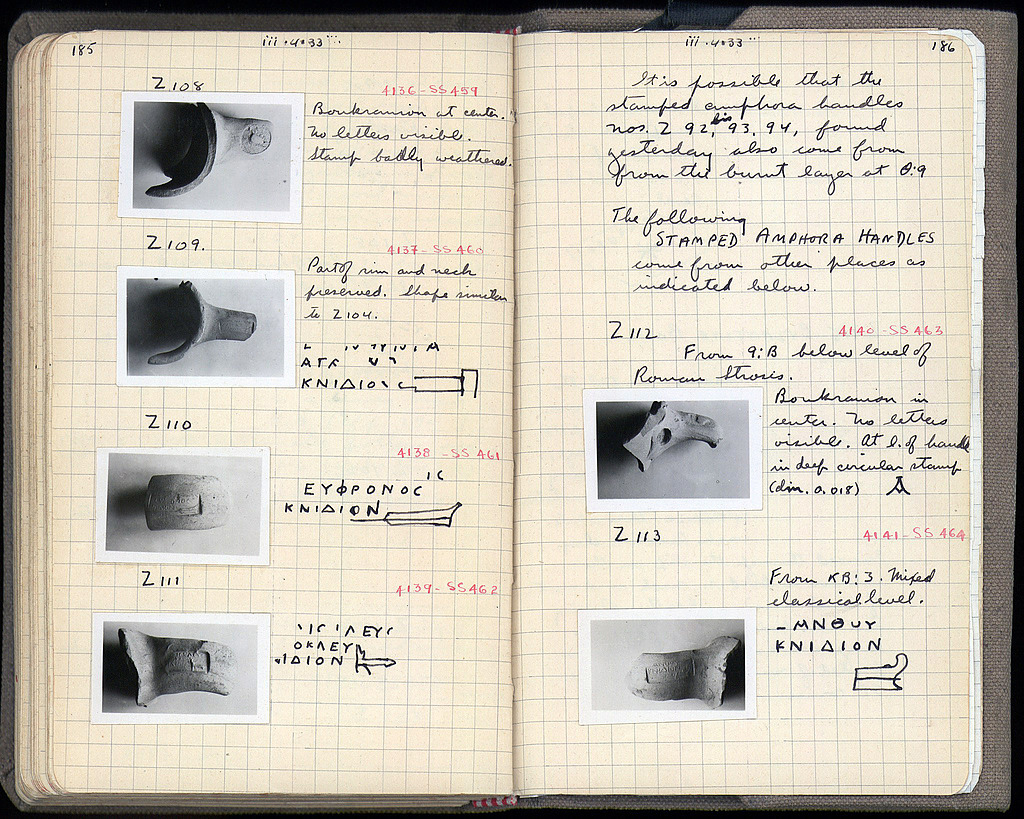 185
iii·4·33
Z 108
4136 - SS 459
Boukranion at center.
No letters visible.
Stamp badly weathered.
Z 109.
4137 - SS 460
Part of rim and neck
preserved. Shape similar
to Z 104.
ΚΝΙΔΙΟ
Z 110
4138 - SS 461
ΙϹ
ΕΥΦΡΟΝΟϹ
ΚΝΙΔΙΟΝ
Z 111
4139 - SS 462
ΟΚΛΕΥ
ΙΔΙΟΝ
iii·4·33
186
It is possible that the
stamped amphora handles
nos. Z 92, bis 93, 94, found
yesterday also come from
from the burnt layer at Θ:9
The following
STAMPED AMPHORA HANDLES
come from other places as
indicated below.
Z 112
4140 - SS 463
From 9:B below level of
Roman Strosis.
Boukranion in
center. No letters
visible. At l. of handle
in deep circular stamp
(dim. 0.018)
Z 113
4141 - SS 464
From KB:3. Mixed
classical level.
– ΜΝΘΥΥ
ΚΝΙΔΙΟΝ